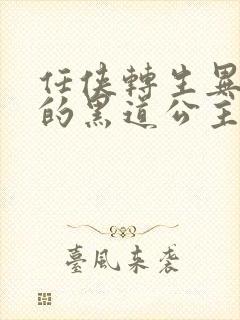 任俠轉生異
的黑道公主
臺風來襲